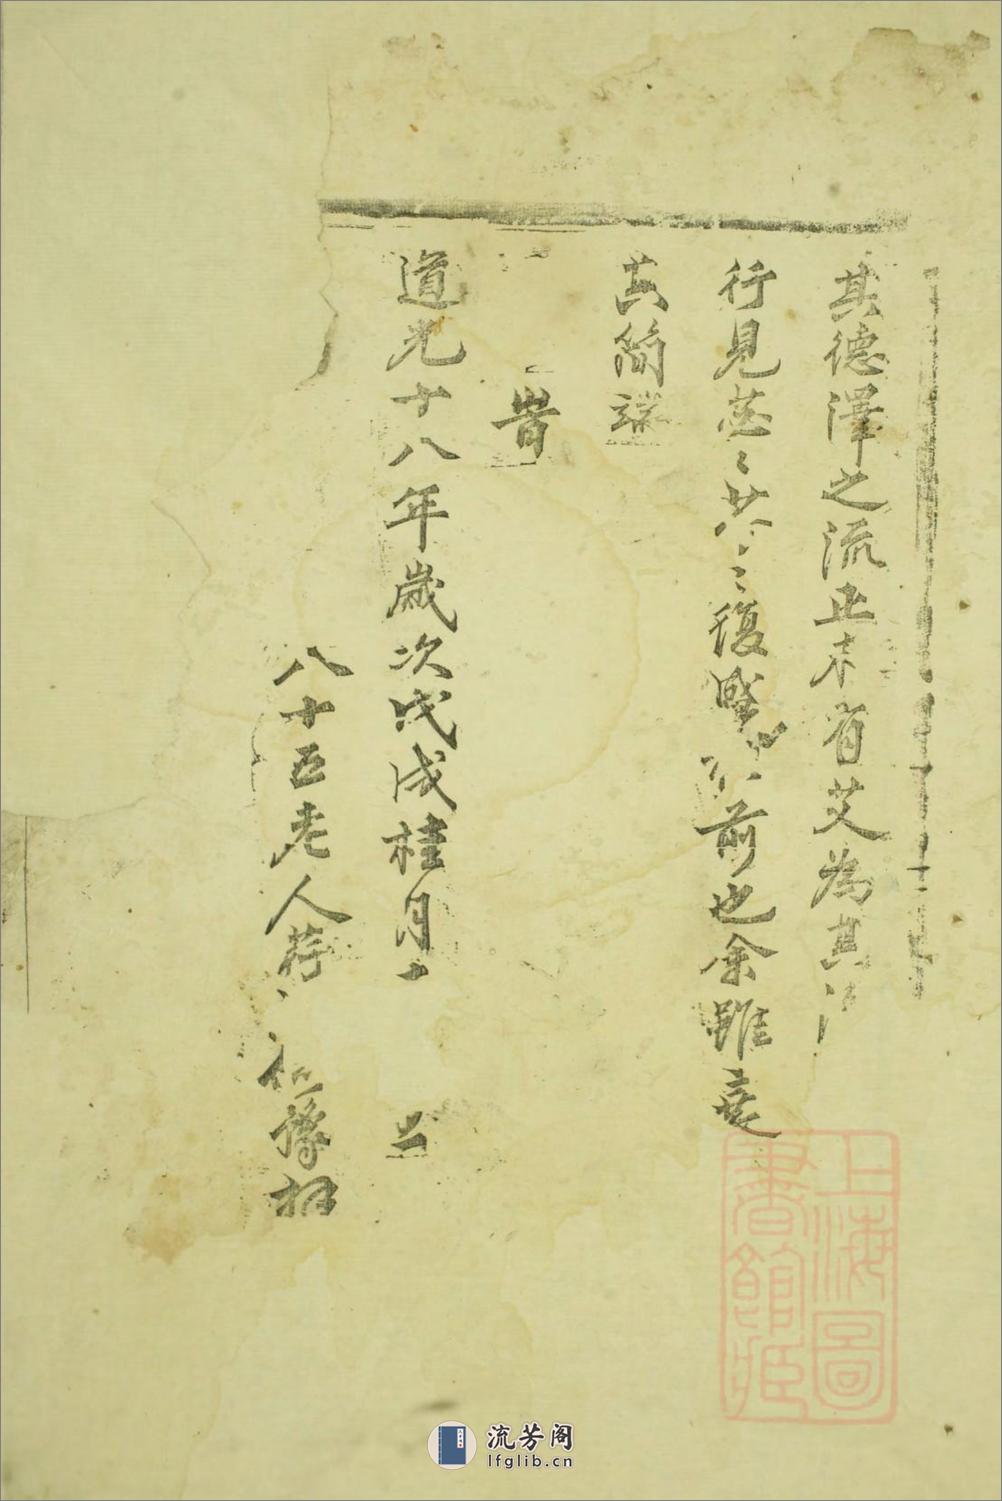 其德澤之流正未有艾為其
行見蒸〻共〻復盛前也余雖耄
其簡端
旹
道光十八年歲次戊戌桂月上
八十五老人荐
上海圖書館藏
流芳阁
lfglib.cn